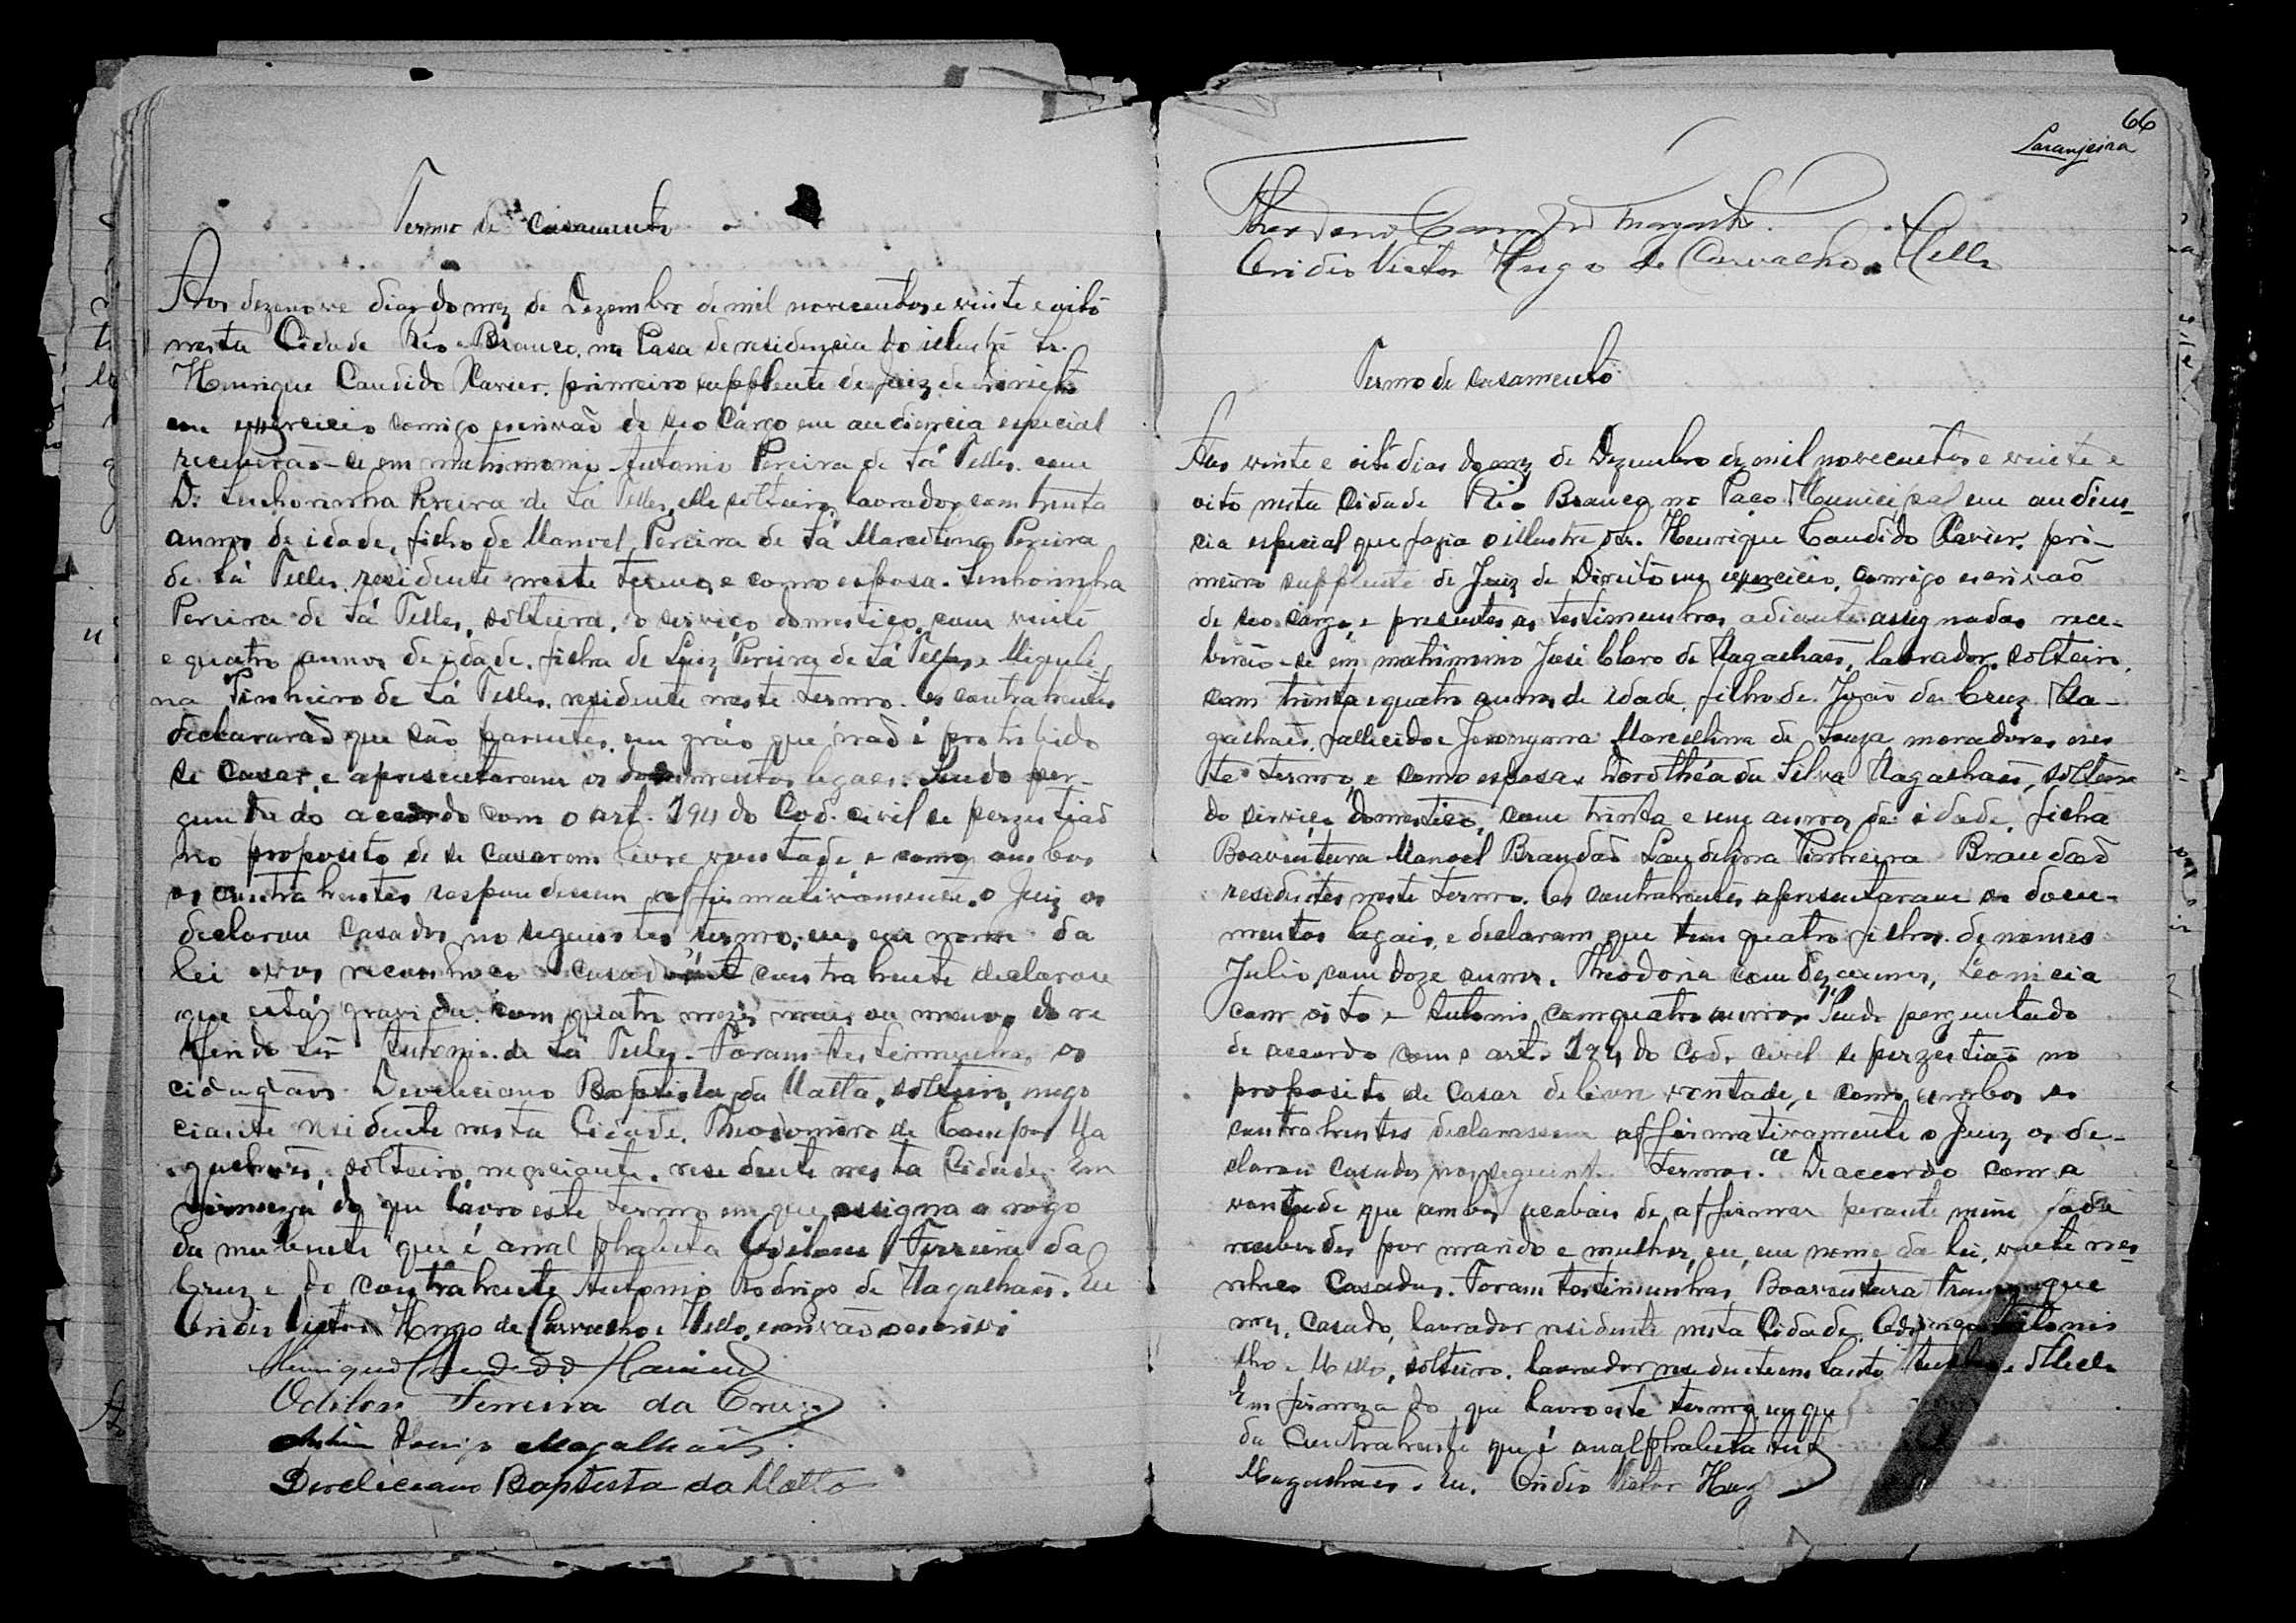 Termo de Casamento
Aos dezenove dias do mez de Dezembro de mil novecentos e vinte e oito
nesta Cidade Rio Branco, na Casa de residencia do illustre Sr.
Henrique Candido Xavier, primeiro supplente de Juiz de Direito
em exercicio comigo escrivão de seo cargo em audiencia especial
receberão-se em matrimonio Antonio Pereira de Sá Telles, com
D. Senhorinha Pereira de Sá Telles, elle solteiro, lavrador, com trinta
annos de idade, filho de Manoel Pereira de Sá Marcolina Pereira
de Sá Telles, residente neste termo, e como esposa. Senhorinha
Pereira de Sá Telles, solteira, o serviço domestico, com vinte
e quatro annos de idade, filha de Luiz Pereira de Sá Telles, e Miguli
na Pinheiro de Sá Telles, residente neste termo. Os contrahentes
declararão que são parentes, em gráo que não é prohibido
se casar, e apresentaram os documentos legaes. Sendo per-
guntado accordo com o art. 194 do Cod. civil se perzestiaõ
no proposito de se casarem livre vontade e como ambos
os contrahentes respondessem affirmativamente. o Juiz os
declarou casados, no seguintes termo, eu, em nome da
lei vos reconheço casados contrahente declarou
que está gravida com quatro mezes mais ou menos do re
ferido Sr. Antonio de Sá Telles. Foram testimunhas os
cidadãos Decleciano Baptista da Matta, solteiro, nego
ciante residente nesta Cidade. Theodomiro de Campos Ma
galhães, solteiro, negociante, residente nesta Cidade. Em
firmeza do que lavro este termo em que assigna a rogo
da nubente que é analphabeta Odilon Ferreira da
Cruz e do contrahente Antonio Rodrigo de Magalhães. Eu
Victor Hugo de Carvalho e Mello, escrivão o escrivi
Henrique Candido Xavier
Odilon Ferreira da Cruz
Magalhães.
Decleciano Baptista da Matta
66
Laranjeira
Victor Hugo de Carvalho e Mello
Termo de casamento
Aos vinte e oito dias do mez de Dezembro de mil novecentos e vinte e
oito nesta Cidade Rio Branco, no Paço Municipal em audien-
cia especial que fazia o illustre Sr. Henrique Candido Xavier, pri-
meiro supplente de Juiz de Direito em exercicio, comigo escrivão
de seo cargo, e presentes as testimunhas adiante assignadas rece-
berão-se em matrimonio José Claro de Magalhães, lavrador, solteiro,
com trinta e quatro annos de idade, filho de João da Cruz Ma-
galhães, fallecido e Jeronyma Marcellina de Souza moradores nes
te termo, e como esposa Dorothéa da Silva Magalhães, solteira
do serviço domestico, com trinta e um annos de idade, filha
Boaventura Manoel Brandão Laudelina Pinheira Brandão
residentes neste termo. Os contrahentes apresentaram os docu-
mentos legais, e declaram que tem quatro filhos de nomes
Julio, com doze annos, Theodoria com dez annos, Leonicia
com oito e Antonio, com quatro annos. Sendo perguntado
de accordo com o art. 194 do Cod. civil se perzestiaõ no
proposito de casar de livre vontade, e como ambos os
contrahentes declarassem affirmativamente o Juiz os de-
clarou casados nos seguintes termos. De accordo com a
vontade que ambos acabais de affirmar perante mim
receberdes por marido e mulher, eu, em nome da lei,
casados. Foram testimunhas Boaventura
casado, lavrador residente nesta Cidade
Mello, solteiro, lavrador residente em Santo
Em firmeza do que lavro este termo, em que
da contrahente que é analphabeta
Magalhães. Eu. Victor Hug